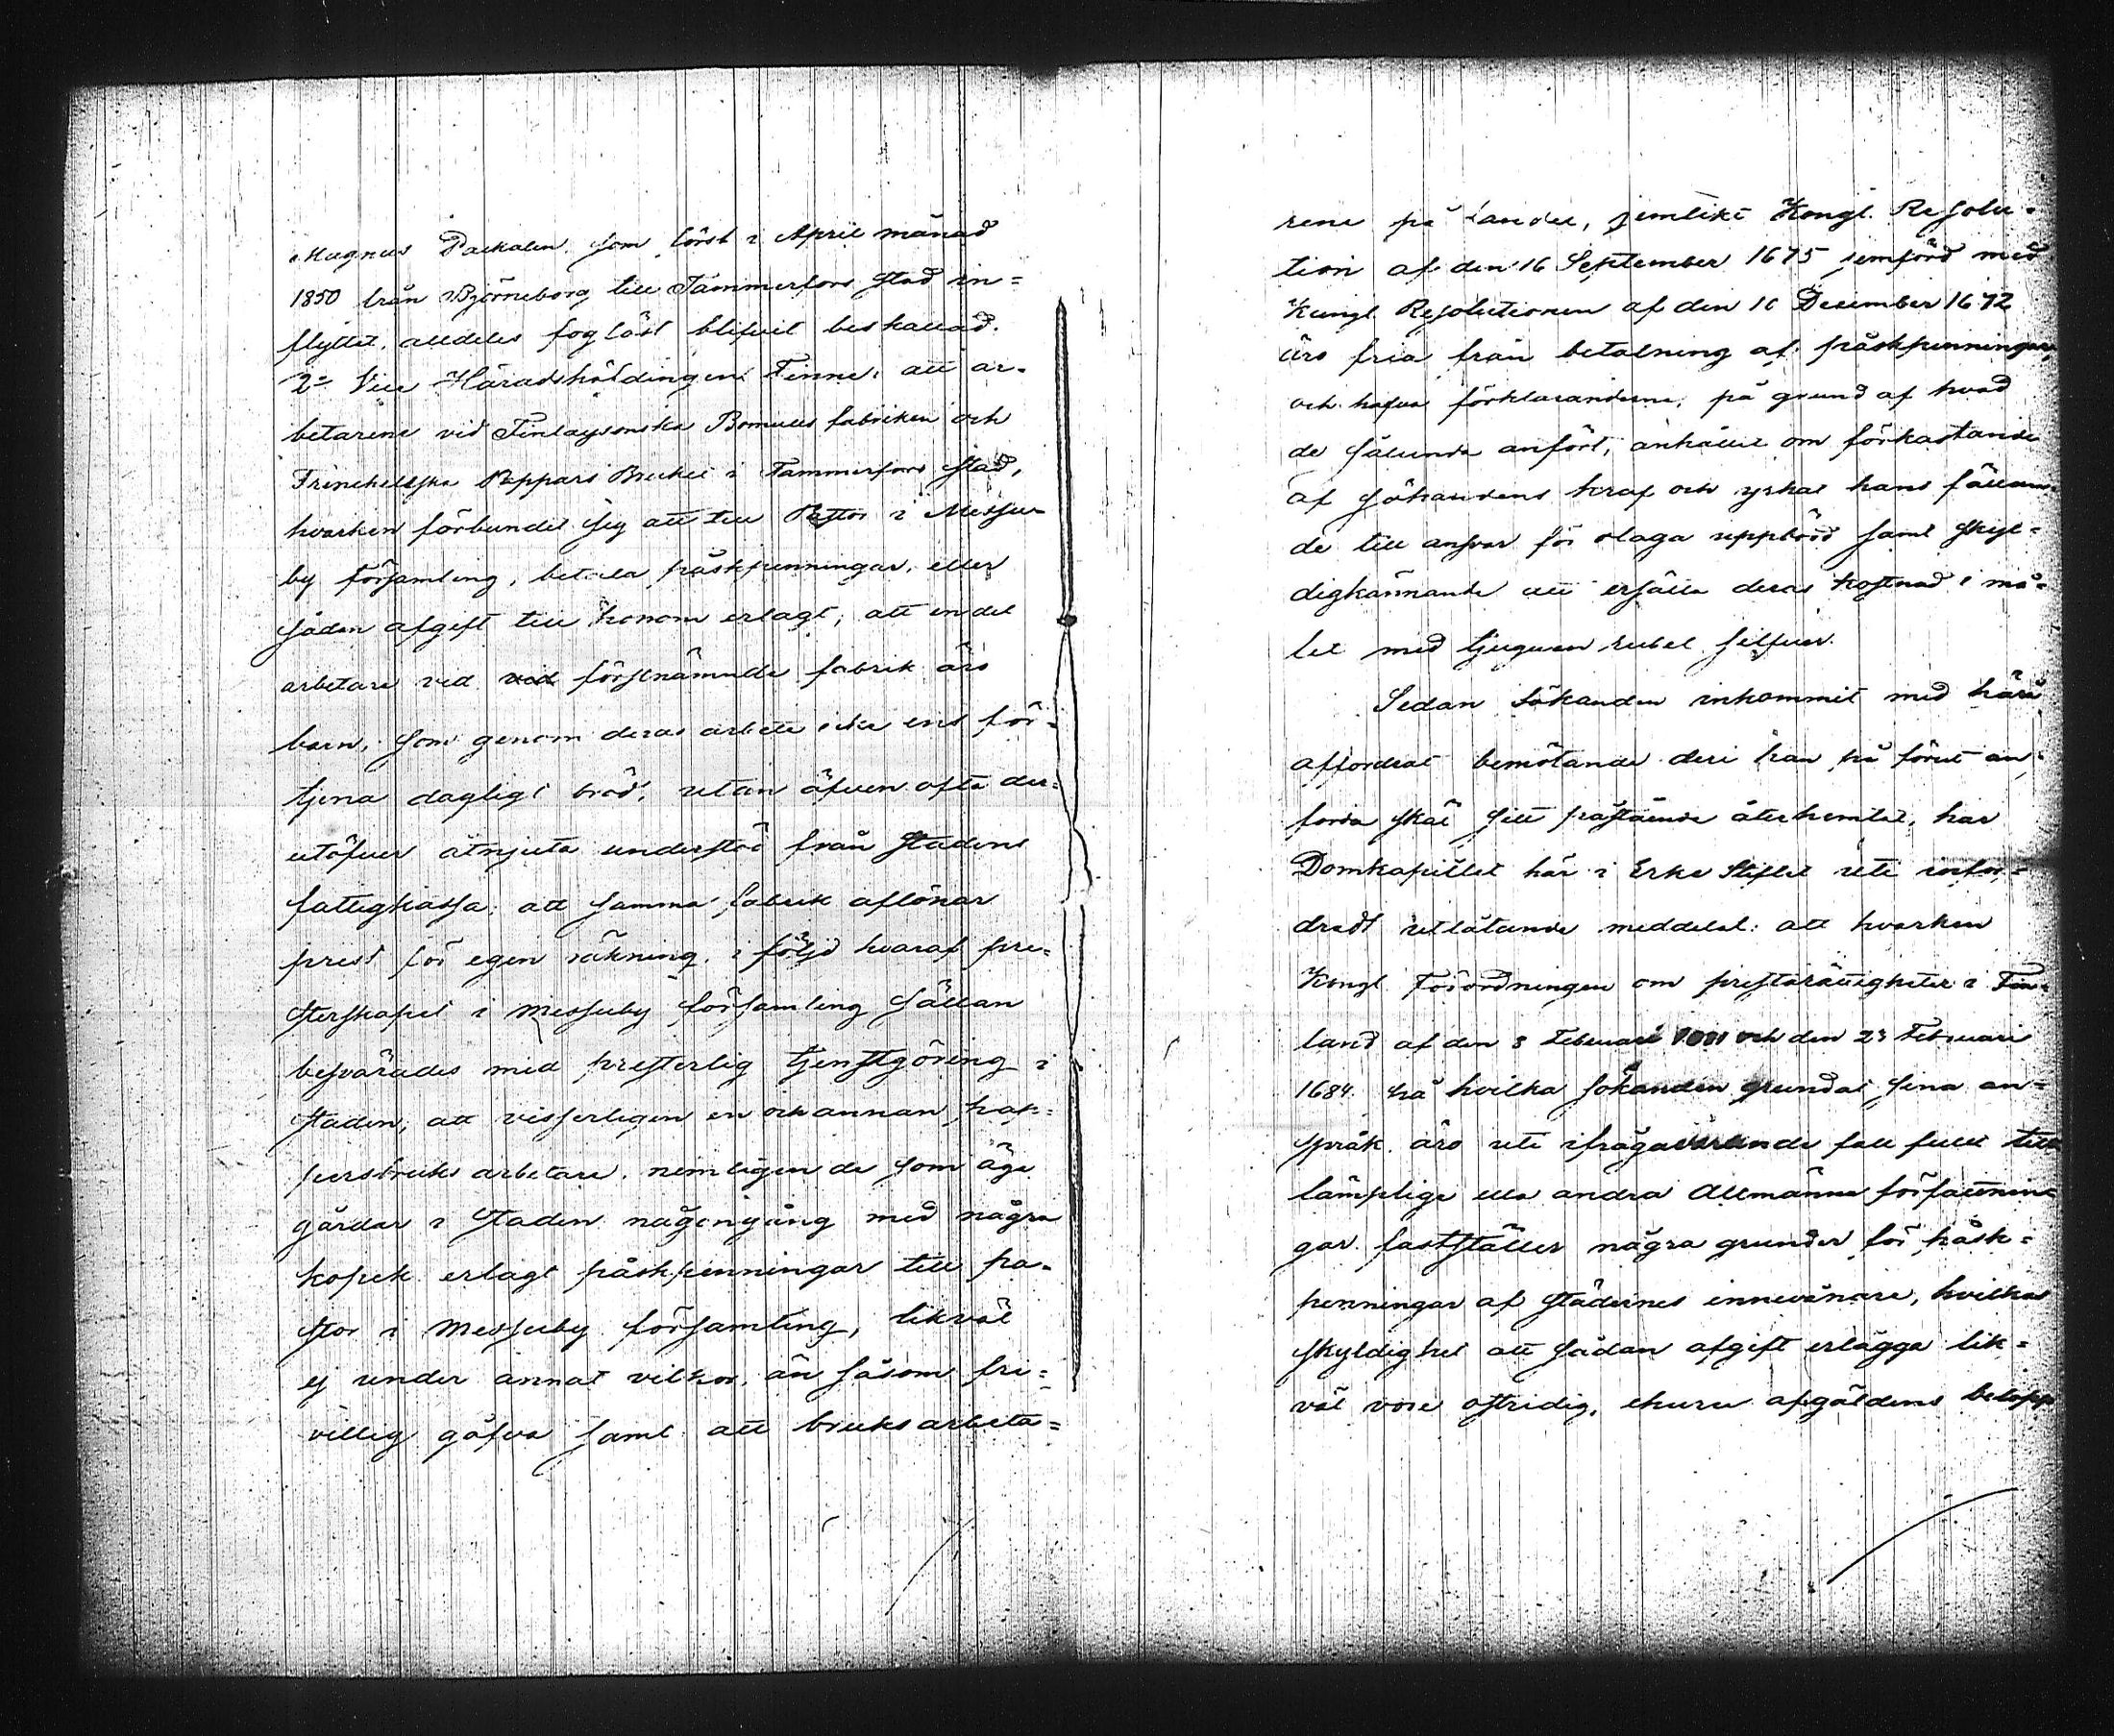 Magnus Packalen som först i April månad
1850 från Björneborg till Tammerfors stad in=
flyttat, alldeles foglöst blifvit beskattad.
2o Vice Häradshöfdingen Finne: att ar=
betarene vid Finlaysonska Bomulls fabriken och
Frenckellska Pappars Bruket i Tammerfors stad,
hvarken förbundit sig att till Pastor i Messu=
by församling, betala påskpenningar, eller
sådan afgift till honom erlagt; att en del
arbetare vid vid förstnämnde fabrik äro
barn, som genom deras arbete icke ens för=
tjena dagligt bröd, utan äfven ofta der=
utöfver åtnjuta understöd från stadens
fattigkassa; att samma fabrik aflönar
prest för egen räkning, i följd hvaraf pre=
sterskapet i Messuby församling sällan
besvärades med presterlig tjenstgöring i
staden; att visserligen en och annan pap=
persbruks arbetare, nemligen de som äga
gårdar i staden någongång med några
kopek erlagt påskpenningar till pa=
stor i Messuby församling, likväl
ej under annat vilkor, än såsom fri=
villig gåfva samt att bruksarbeta=
rene på landet, jemlikt Kongl. Resolu=
tion af den 16 September 1675 jemförd med
Kungl. Resolutionen af den 10 December 1672
äro fria från betalning af påskpenningar,
och hafva förklaranderne, på grund af hvad
de sålunda anfört, anhållit om förkastande
af sökandens kraf och yrkat hans fällan=
de till ansvar för olaga uppbörd samt skyl=
digkännande att ersätta deras kostnad i må=
let med tjugusen rubel silfver.
Sedan Sökanden inkommit med härå
affordrat bemötande deri han på förut an=
förda skäl sitt påstående återhemtat, har
Domkapitlet här i Erke Stiftet uti infor=
dradt utlåtande meddelat: att hvarken
Kongl. Förordningen om prestarättigheter i Fin=
land af den 3 Februari och den 23 Februari
1684 på hvilka sökanden grundat sina an=
språk äro uti ifrågavarande fall fullt till
lämplige eller andra Allmänna författnin=
gar fastställer några grunder för påsk=
penningar af städernes innevånare, hvilkas
skyldighet att sådan afgift erlägga lik=
väl vore ostridig, ehuru afgäldens belopp